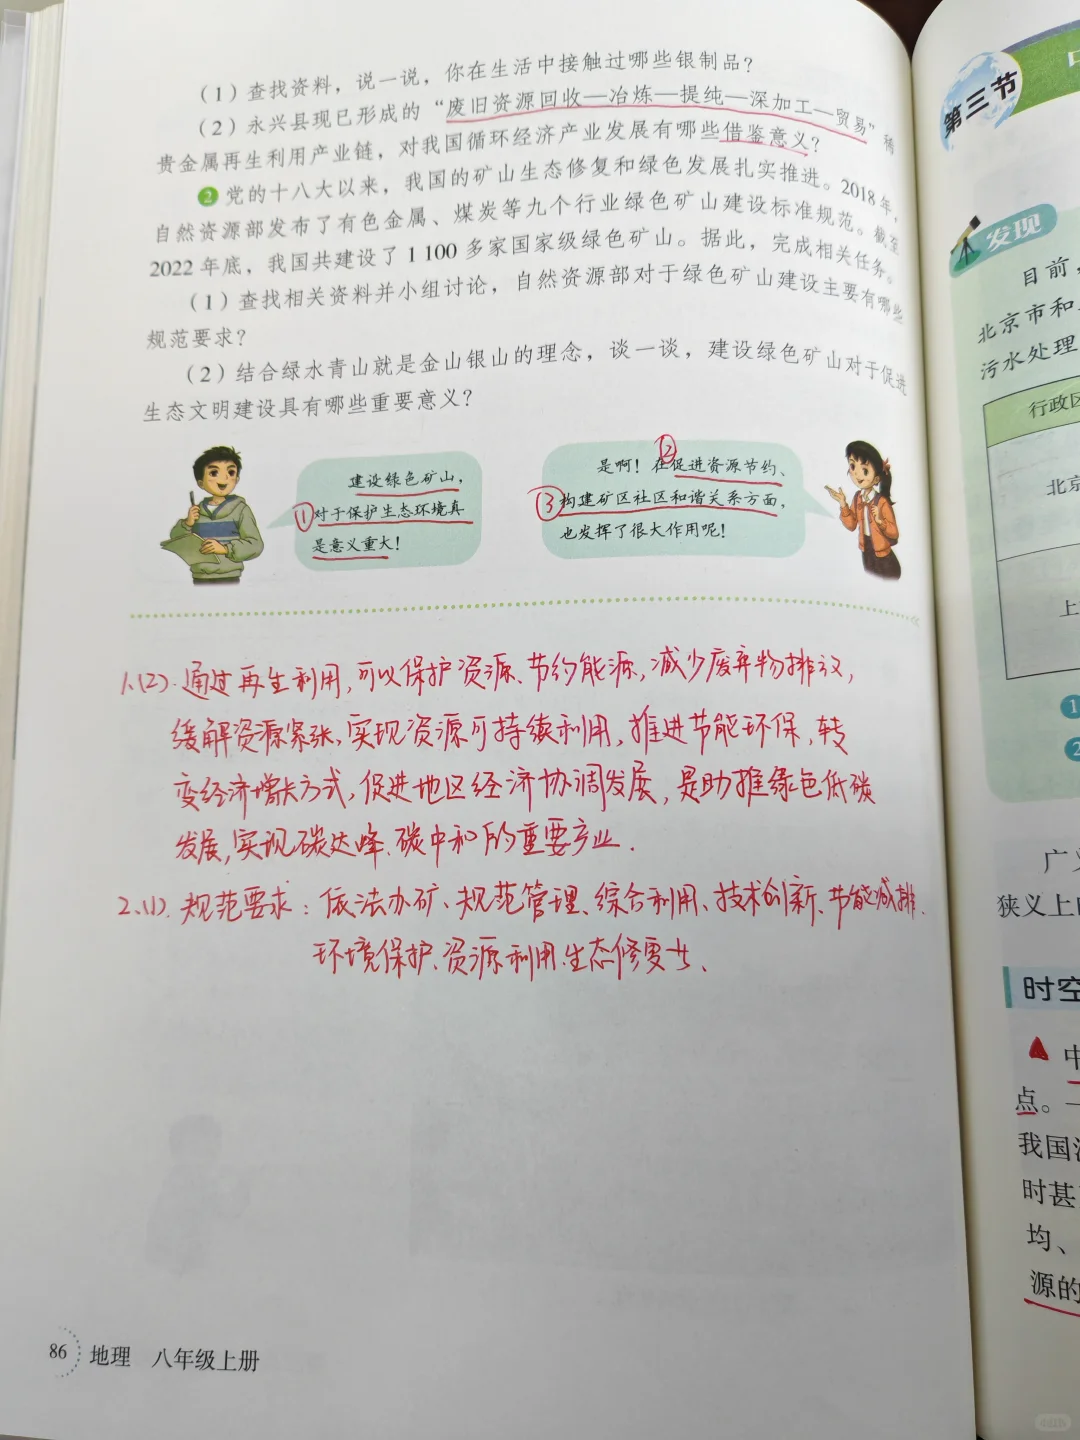 （1）查找资料，说一说，你在生活中接触过哪些银制品？
（2）永兴县现已形成的“废旧资源回收—冶炼—提纯—深加工—贸易”稀
贵金属再生利用产业链，对我国循环经济产业发展有哪些借鉴意义？
2 党的十八大以来，我国的矿山生态修复和绿色发展扎实推进。2018年，
自然资源部发布了有色金属、煤炭等九个行业绿色矿山建设标准规范。截至
2022年底，我国共建设了1 100多家国家级绿色矿山。据此，完成相关任务。
（1）查找相关资料并小组讨论，自然资源部对于绿色矿山建设主要有哪些
规范要求？
（2）结合绿水青山就是金山银山的理念，谈一谈，建设绿色矿山对于促进
生态文明建设具有哪些重要意义？
建设绿色矿山，
①对于保护生态环境真
是意义重大！
②
是啊！在促进资源节约、
③构建矿区社区和谐关系方面，
也发挥了很大作用呢！
1.(2). 通过再生利用，可以保护资源、节约能源，减少废弃物排放，
缓解资源紧张，实现资源可持续利用，推进节能环保，转
变经济增长方式，促进地区经济协调发展，是助推绿色低碳
发展，实现碳达峰、碳中和的重要产业．
2、(1)．规范要求：依法办矿、规范管理、综合利用、技术创新、节能减排、
环境保护、资源利用、生态修复等、
86 地理 八年级上册
第三节
发现
目前，
北京市和
污水处理
行政区
北京
上
1
2
广义
狭义上的
时空
▲中
点。一
我国
时甚
均、
源的